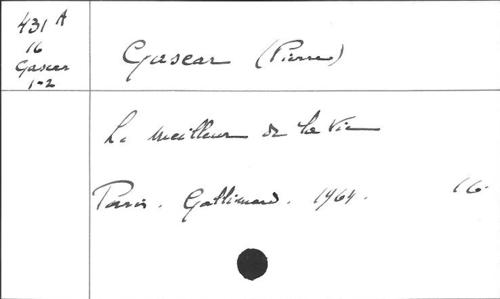 431 A
16
Gascar
1-2
Gascar (Pierre)
Le meilleur de la vie
Paris. Gallimard. 1964. 16.